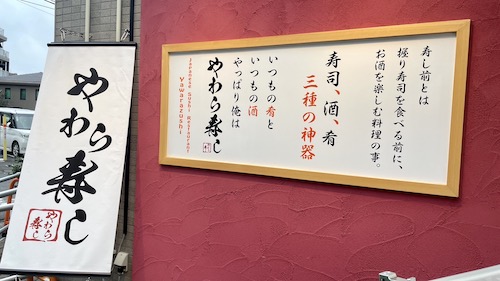 やわら寿し
やわら
寿し
寿し前とは
握り寿司を食べる前に、
お酒を楽しむ料理の事。
寿司、酒、肴
三種の神器
いつもの肴と
いつもの酒
やっぱり俺は
やわら寿し
Japanese Sushi Restaurant
Yawarazushi